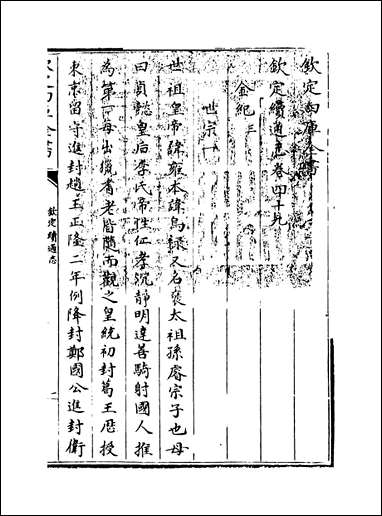 欽定四庫全書
欽定續通志卷四十九
金紀三
世宗一
世祖皇帝諱雍本諱烏祿又名褎太祖孫睿宗子也母
曰貞懿皇后李氏帝性仁孝沉靜明達善騎射國人推
為第一每出獵耆老皆隨而觀之皇統初封葛王厯授
東京留守進封趙王正隆二年例降封鄭國公進封衛
欽定續通志